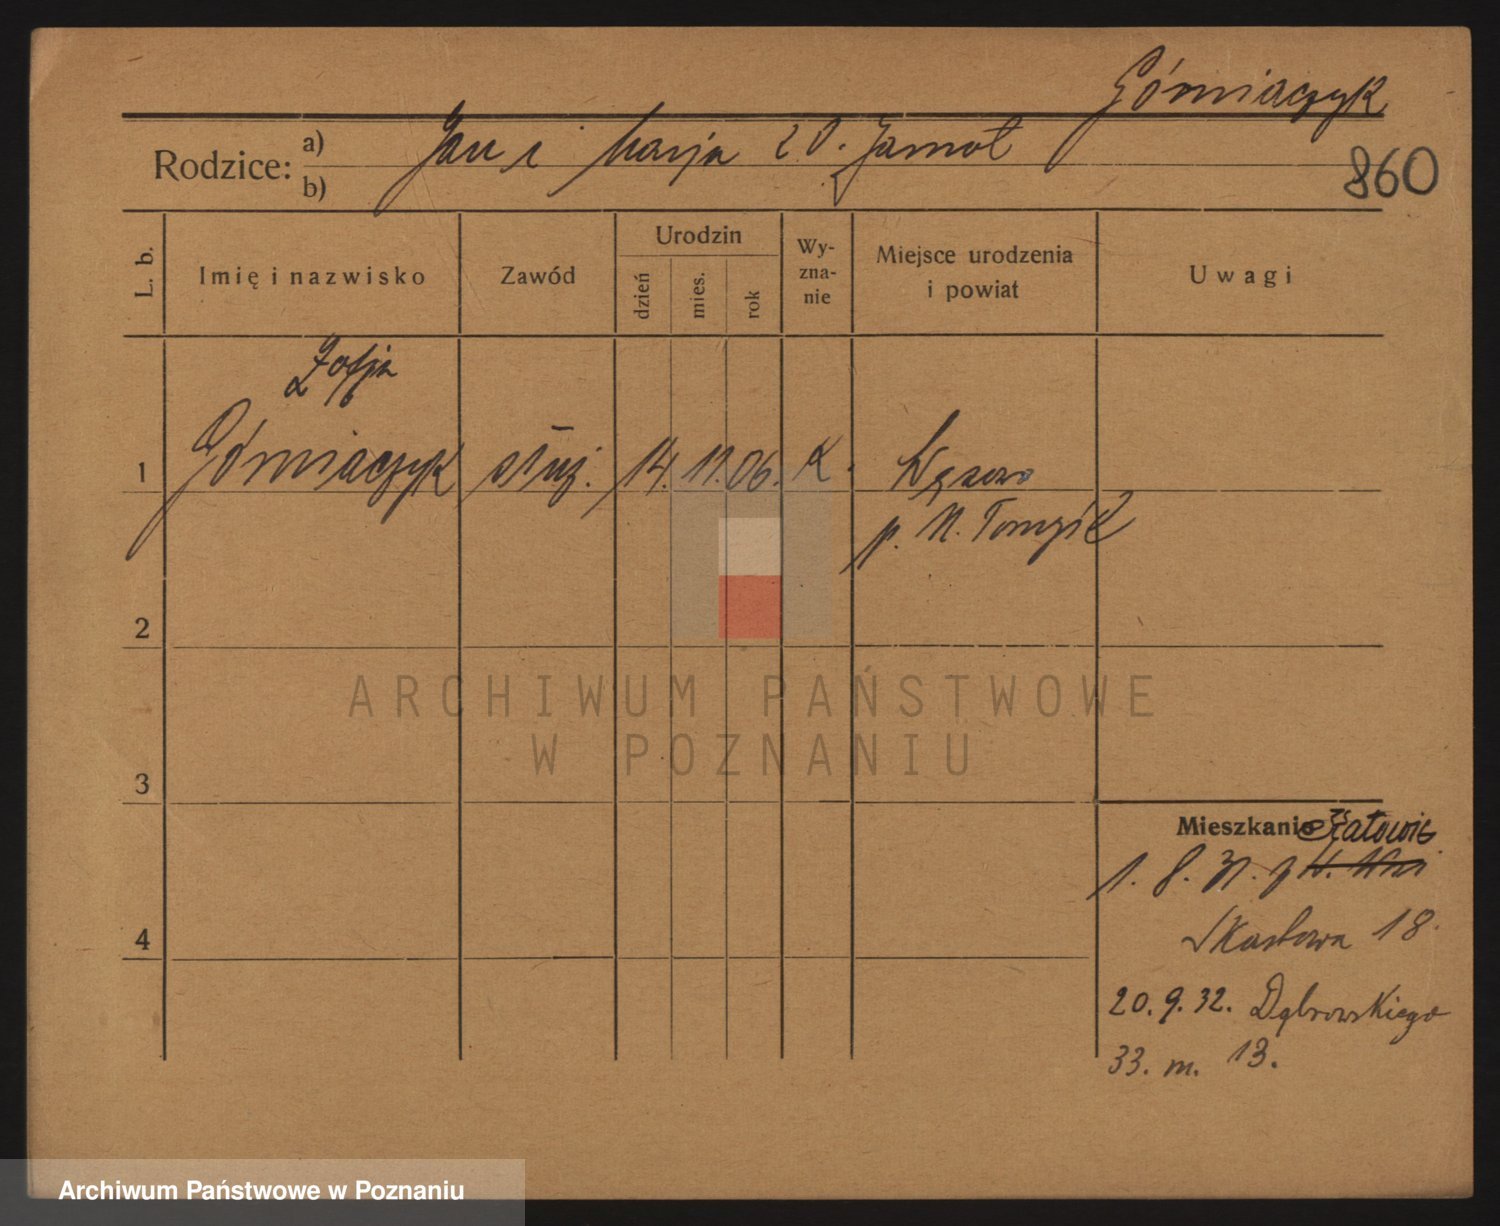 Górniaczyk
Rodzice: a) Jan i Marja zd. Jarnot
b)
860
L. b.
Imię i nazwisko
Zawód
Urodzin
dzień
mies.
rok
Wy-
zna-
nie
Miejsce urodzenia
i powiat
Uwagi
Zofja
1 Górniaczyk służ. 14. 11. 06. K.
p. N. Tomyśl
2
3
4
Mieszkanie
1. 8. 31. z
18.
20. 9. 32. Dąbrowskiego
33. m. 13.
ARCHIWUM PAŃSTWOWE
W POZNANIU
Archiwum Państwowe w Poznaniu